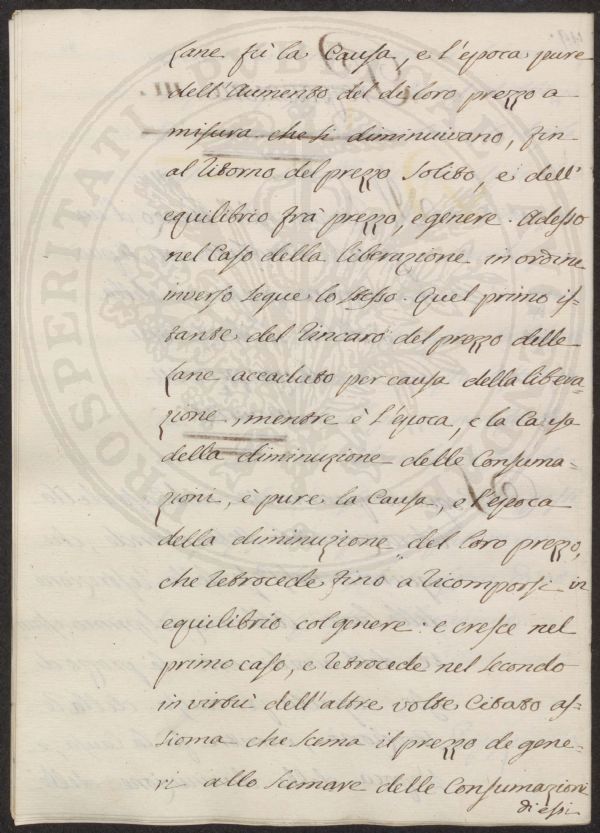 Lane fù la Causa, e l'epoca pure
dell'Aumento del di loro prezzo a
misura che si diminuivano, fin
al ritorno del prezzo solito, e dell'
equilibrio frà prezzo, e genere. Adesso
nel Caso della liberazione in ordine
inverso segue lo stesso. Quel primo is-
tante del rincaro del prezzo delle
Lane accaduto per causa della libera-
zione, mentre è l'epoca, e la Causa
della diminuzione delle Consuma-
zioni, è pure la Causa, e l'epoca
della diminuzione del loro prezzo,
che retrocede fino a ricomporsi in
equilibrio col genere: e cresce nel
primo caso, e retrocede nel secondo
in virtù dell'altre volte Citato as-
sioma che scema il prezzo de gene-
ri allo scemare delle Consumazioni
di essi
PROSPERITATI PUBLICAE